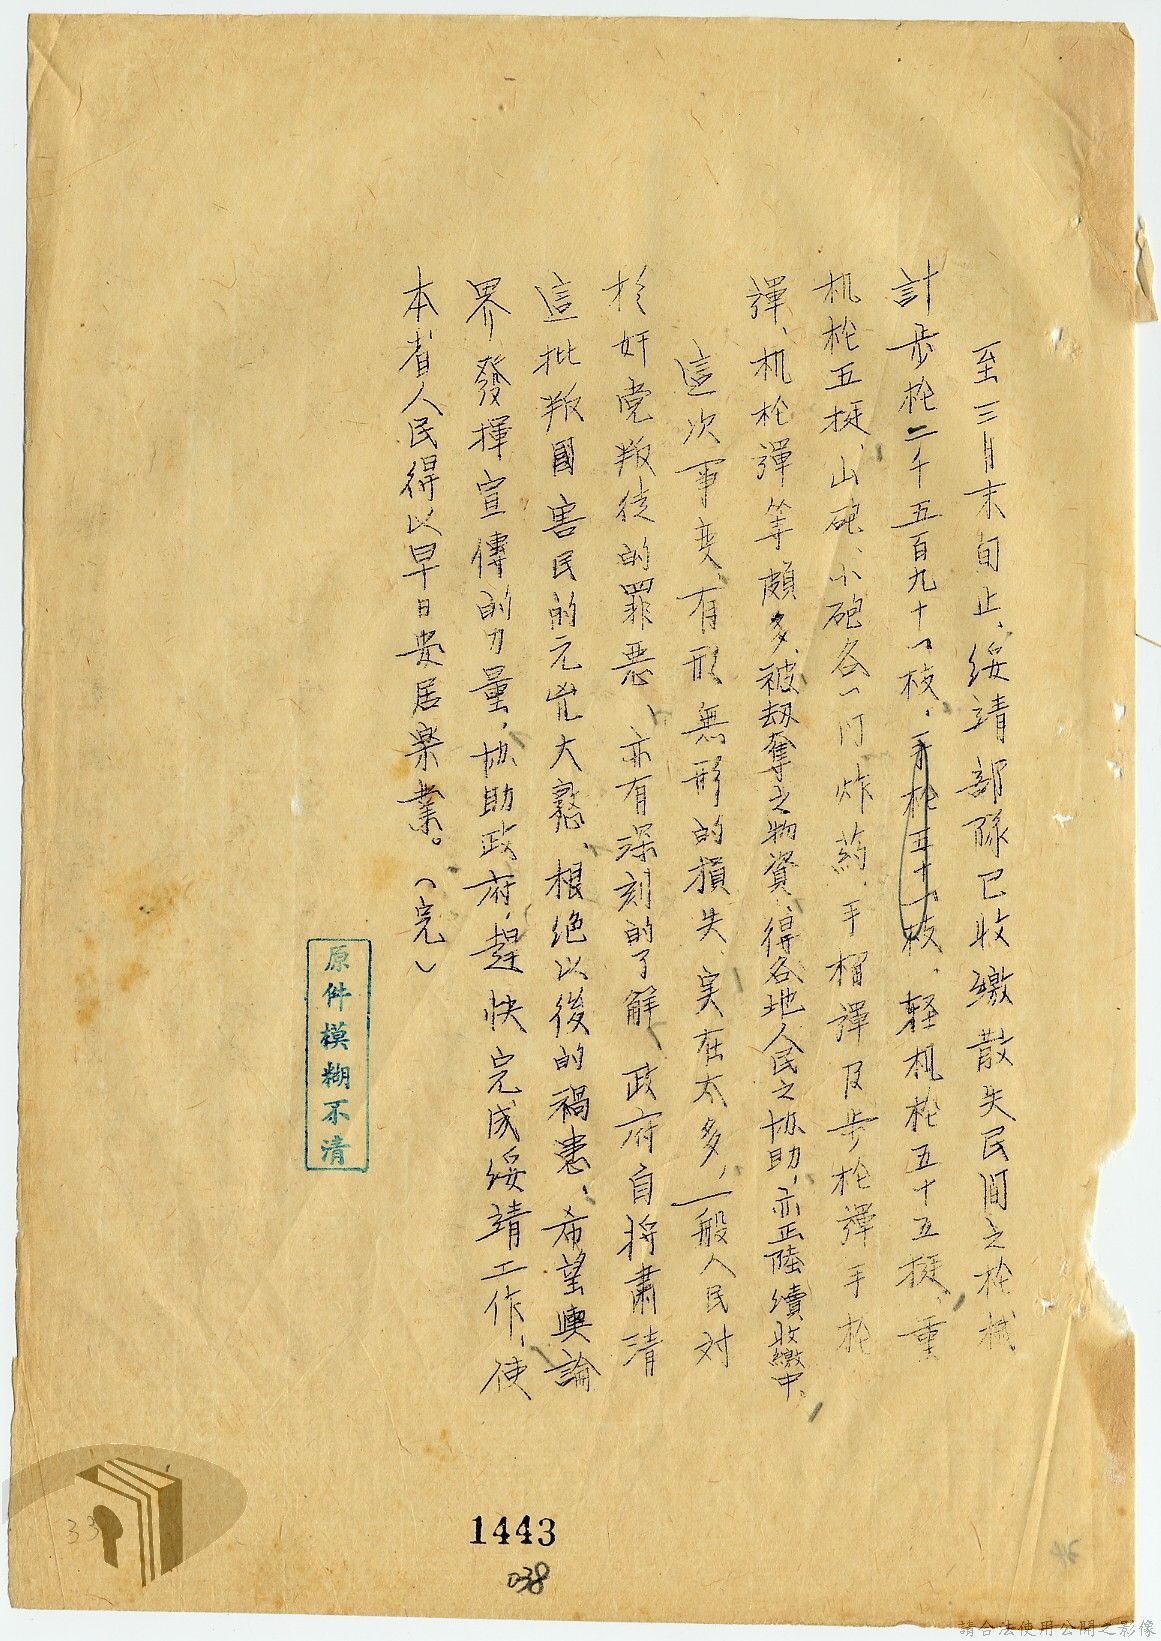 至三月末旬止、綏靖部隊已收繳散失民间之枪械
計步枪二千五百九十一枝、手枪五十一枝、轻机枪五十五挺、重
机枪五挺、山砲、小砲各一门炸药、手榴弹及步枪弹手枪
弹、机枪弹等頗多、被劫奪之物資、得各地人民之协助、亦正陸續收繳中。
這次事变、有形無形的損失、実在太多，一般人民对
於奸党叛徒的罪恶、亦有深刻的了解、政府自将肅清
這批叛國害民的元兇大憝、根绝以後的禍患、希望輿論
界發揮宣傳的力量，协助政府，趕快完成綏靖工作，使
本省人民得以早日安居楽業。（完）
原件模糊不清
1443
038
33
46
請合法使用公開之影像